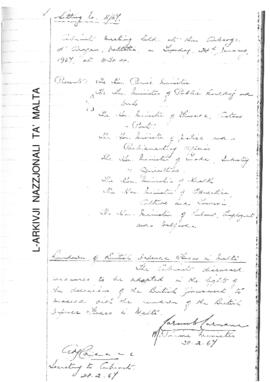 L-ARKIVJI NAZZJONALI TA' MALTA
Sitting No. 5/67.
Cabinet meeting held at the Auberge
d'Aragon, Valletta on
1967, at
Present: The Hon. Prime Minister
The Hon. Minister of Public Building and
Works
The Hon. Minister of Finance, Customs
& Port
The Hon. Minister of Justice and
Parliamentary Affairs
The Hon. Minister of Trade, Industry
& Agriculture
The Hon. Minister of Health
The Hon. Minister of Education
Culture and Tourism
The Hon. Minister of Labour, Employment
and Welfare
Rundown of British Defence Forces in Malta
The Cabinet discussed
measures to be adopted in the light of
the decision of the British Government to
proceed with the rundown of the British
Defence Forces in Malta.
Prime Minister
20.2.67
Secretary to Cabinet
20.2.67